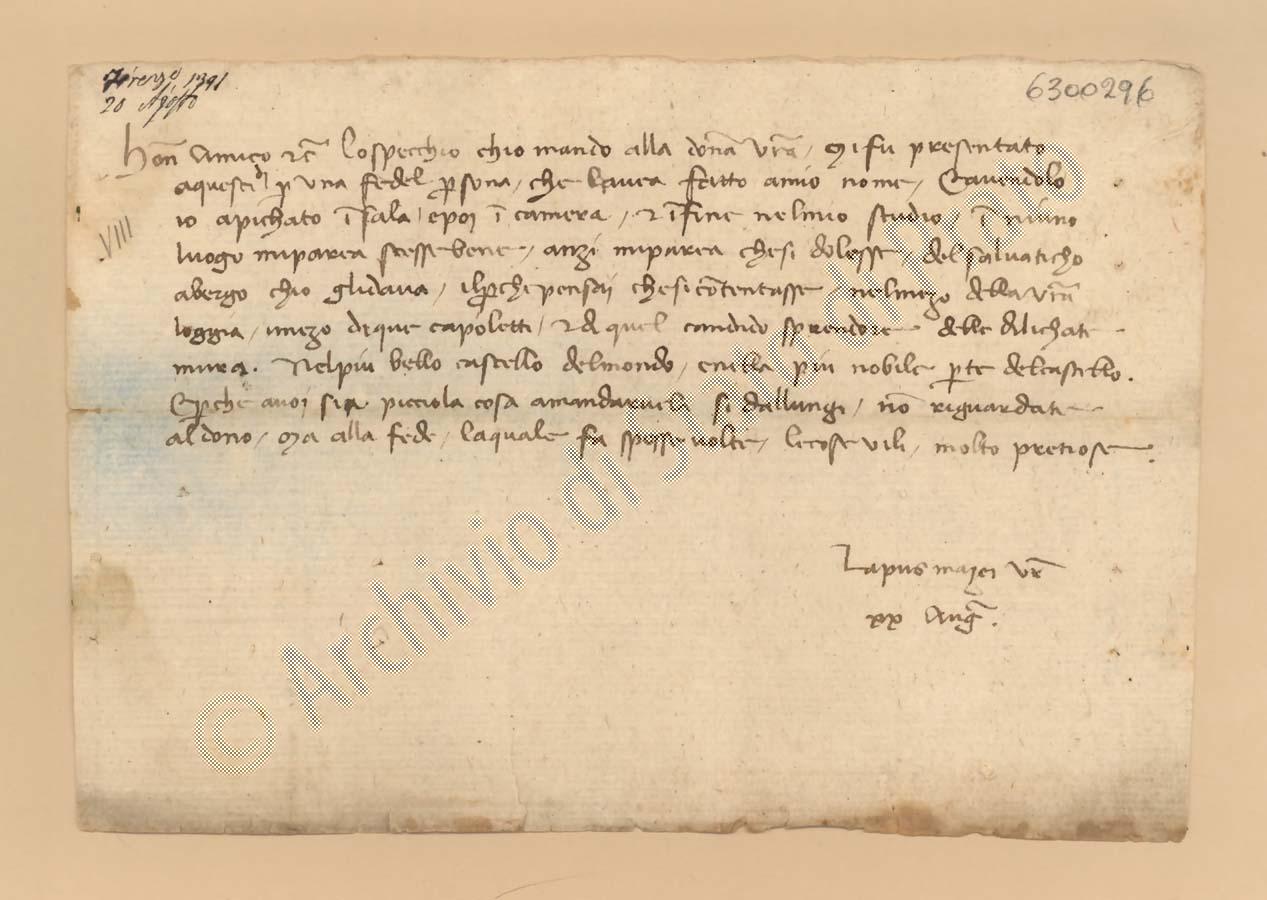 Firenze, 1391
20 Agosto
6300296
VIII
Hon Amico etc̃ Lospecchio chio mando alla dõna vr̃a / Mi fu presentato
aquesti dì p una fedel psona / che lavea fatto amio nome / Et avendolo
io apichato ĩ sala / epoi ĩ camera / et ĩ fine nelmio studio / ĩ niuno
luogo miparea stesse bene / anzi miparea chesi dolesse / del salvaticho
abergo chio glidava / ilpche pensai chesicõtentasse / nelmezo della vr̃a
loggia / imezo di que capoletti / et di quel candido sprendore delle dilichate
mura. Nelpiu bello castello delmondo / enella piu nobile pte delcastello.
Et pche avoi sia picciola cosa amandarvela si dallungi / nõ riguardate
aldono / Ma alla fede / laquale fa spessevolte / lecose vili / molto pretiose.
Lapus mazei vr̃
xx Aug̃.
© Archivio di Stato di Prato